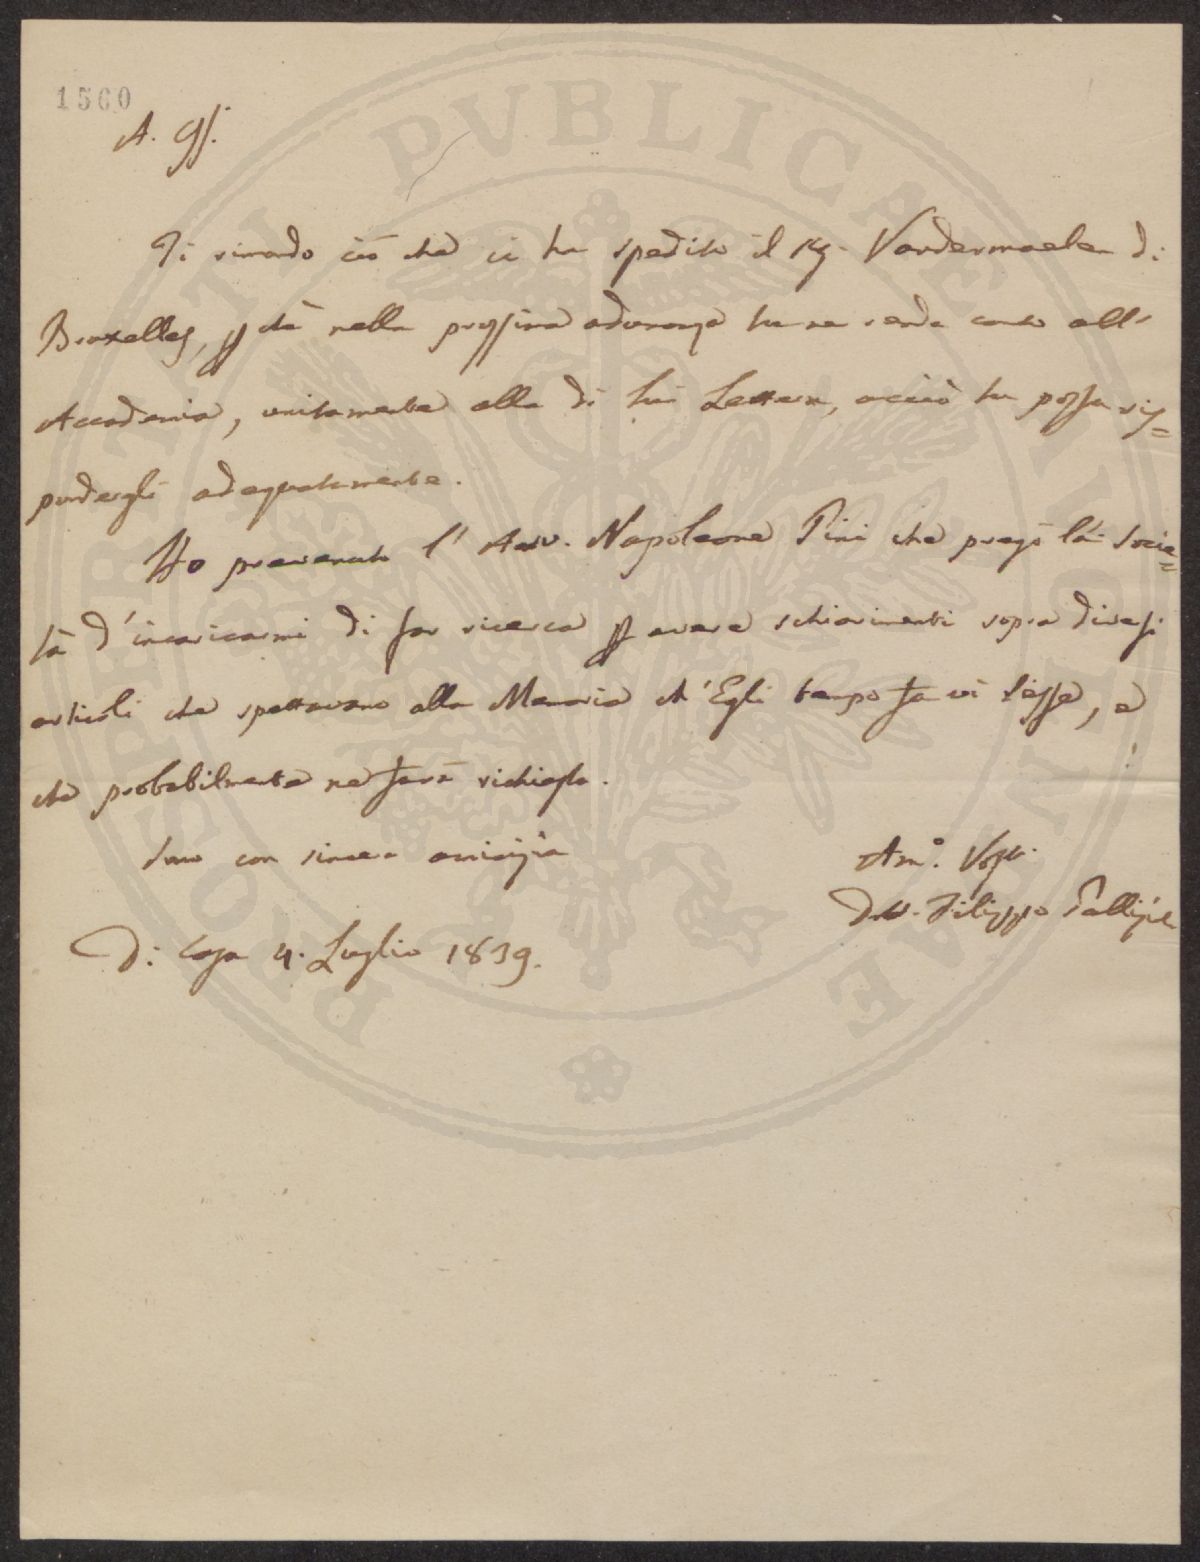 1560
A. C.
Ti rimando ciò che ci ha spedito il Sig. Vandermaelen di
Bruxelles, p che nella prossima adunanza tu ne renda conto all'
Accademia, unitamente alla di lui Lettera, acciò tu possa ris=
pondergli adeguatamente.
Ho prevenuto l' Avv. Napoleone Pini che pregò la Socie=
tà d'incaricarmi di far ricerca p avere schiarimenti sopra diversi
articoli che spettavano alla Memoria ch'Egli tempo fa vi lesse, e
che probabilmente ne farà richiesta.
Sono con sincera amicizia
Am.º Vost.
Filippo
Di Casa 4. Luglio 1839.
PVBLICAE